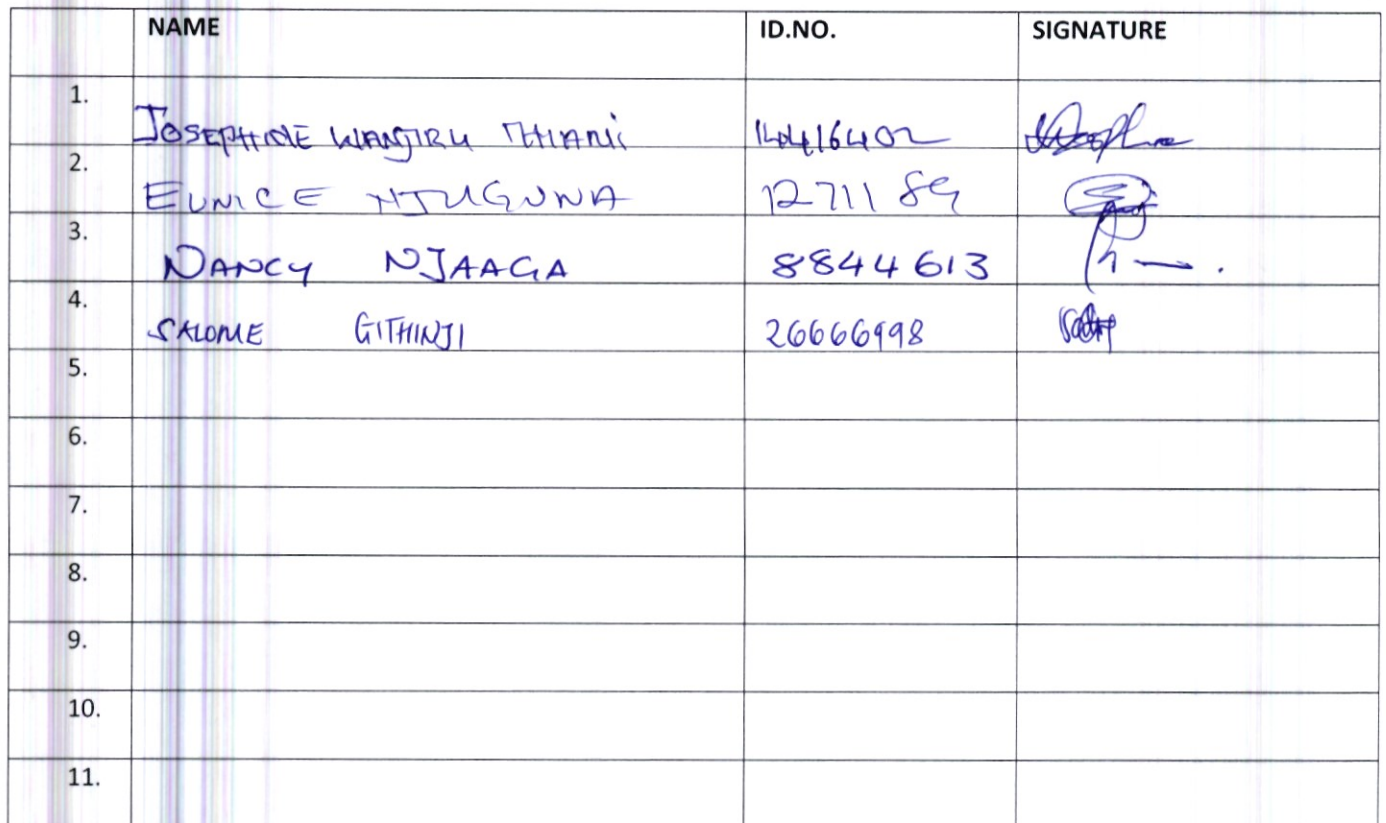 NAME ID.NO. SIGNATURE
1. JOSEPHINE WANJIRU THIANI
2. EUNICE NJUGUNA 1271189
3. NANCY NJAAGA 8844613
4. SALOME GITHINJI 26666998
5.
6.
7.
8.
9.
10.
11.